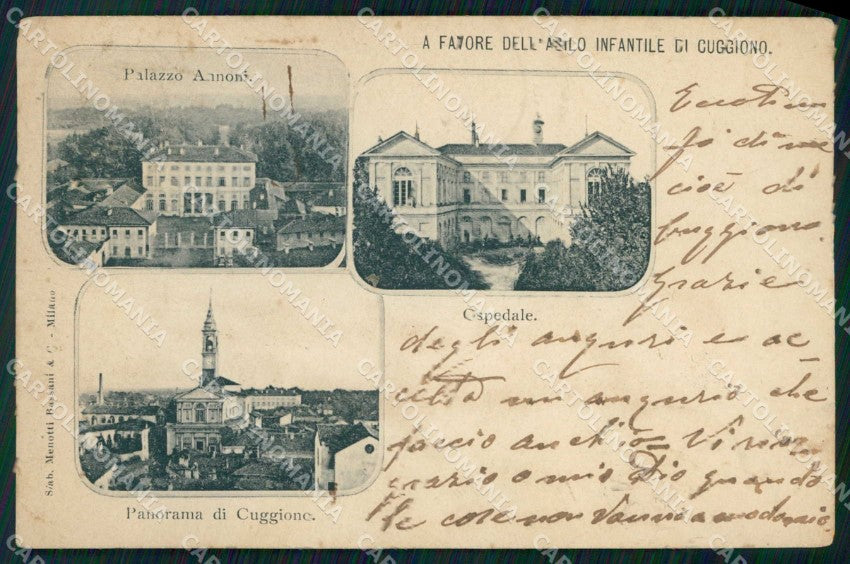 A FAVORE DELL'ASILO INFANTILE DI CUGGIONO.
Palazzo Annoni.
Ospedale.
Panorama di Cuggiono.
Stab. Menotti Bassani & C. - Milano
di me
cioè di
Cuggiono.
Grazie
degli auguri e ac
cetta un augurio che
faccio anch'io. Vi rin
grazio o mio Dio quando
le cose non vanno a modo mio.
CARTOLINOMANIA